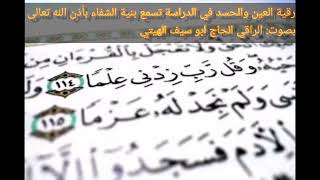 رقية العين والحسد في الدراسة تسمع بنية الشفاء بأذن الله تعالى
بصوت: الراقي الحاج ابو سيف الهيتي
وَقُل رَّبِّ زِدْنِي عِلْمًا ١١٤
وَلَمْ نَجِدْ لَهُۥ عَزْمًا ١١٥
لِأَدَمَ فَسَجَدُوٓا۟ إِلَّآ